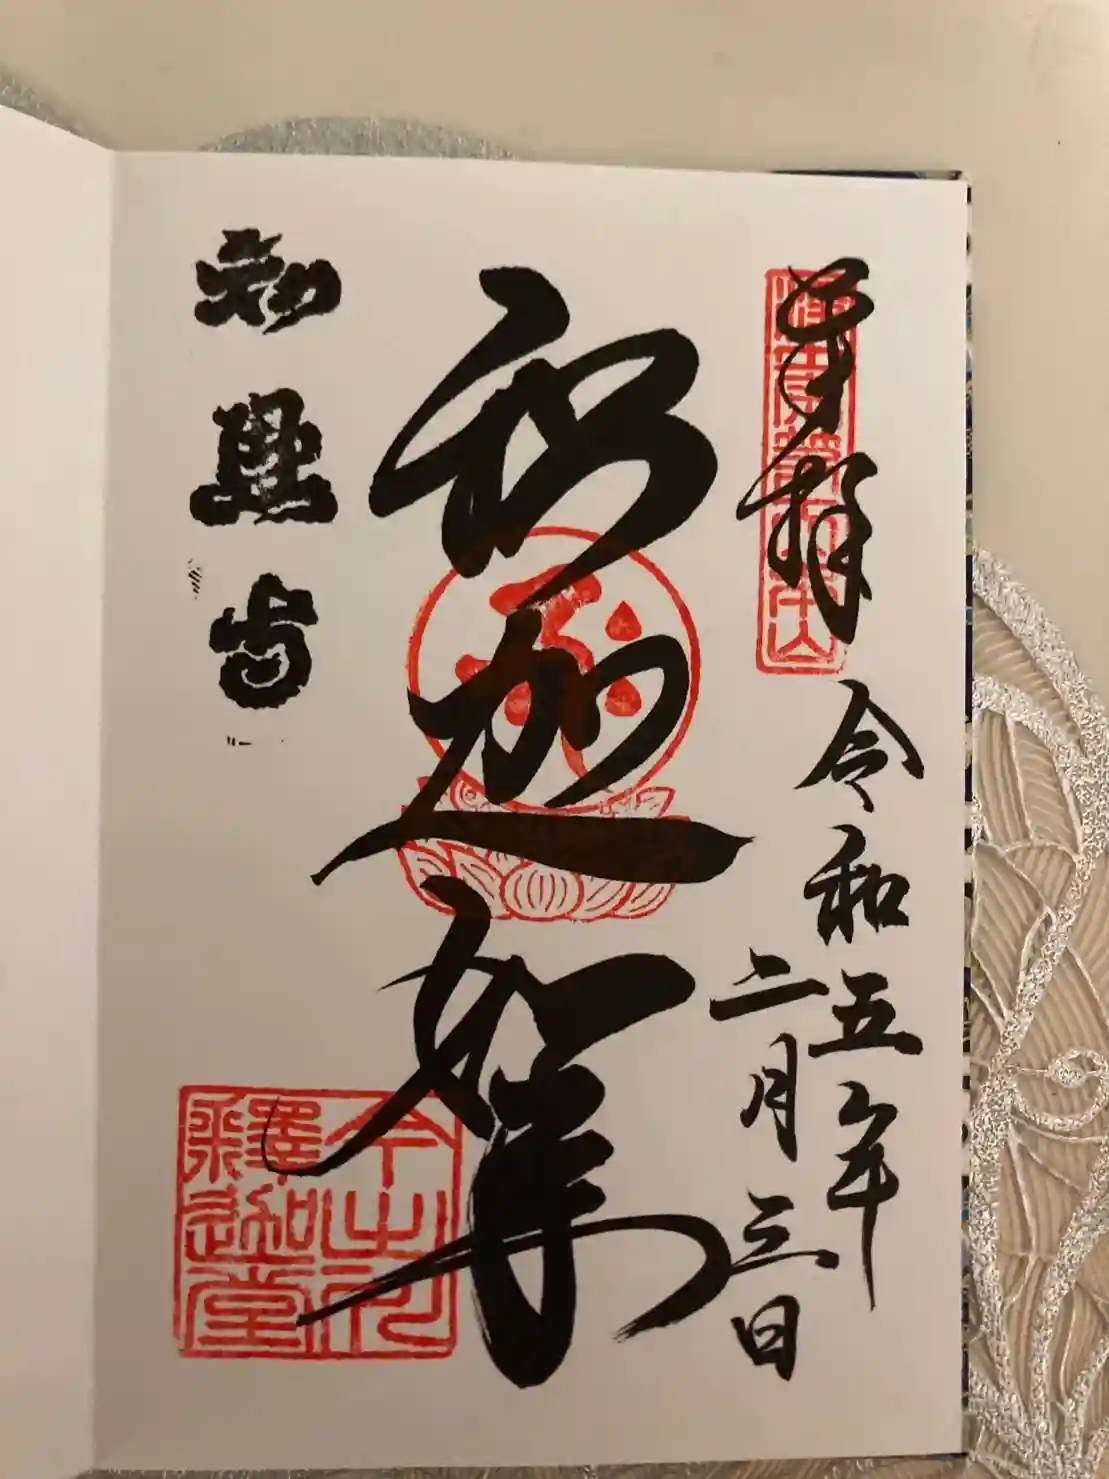 奉拝
令和五年
二月三日
釈迦如来
知恩寺
釋迦堂